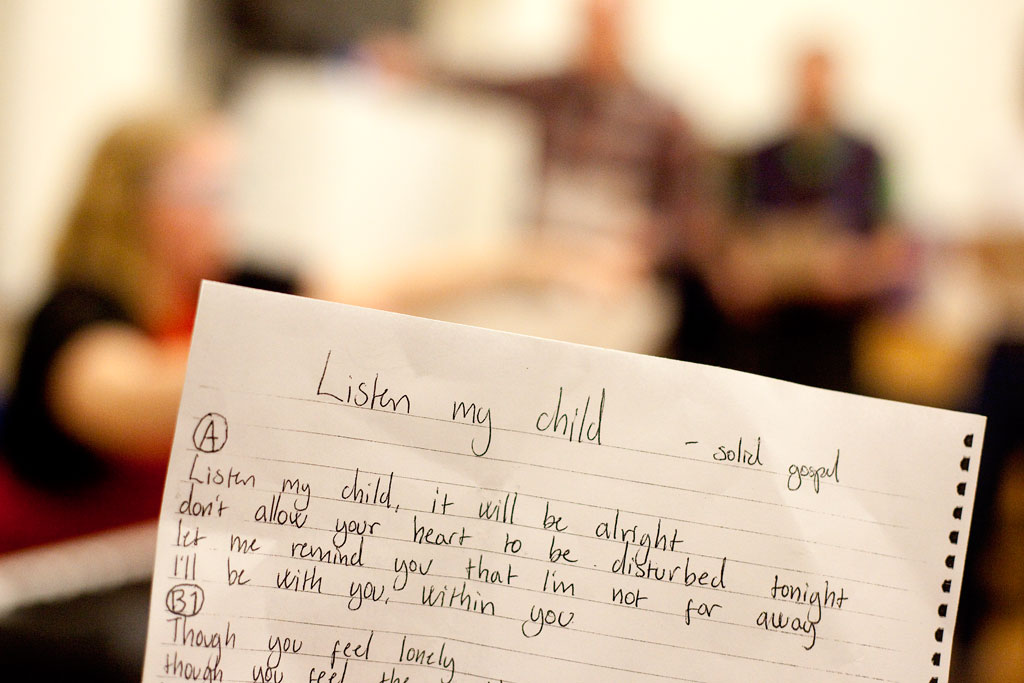 Listen my child - solid gospel
A
Listen my child, it will be alright
don't allow your heart to be disturbed tonight
let me remind you that I'm not far away
I'll be with you, within you
B1
Though you feel lonely
though you feel the